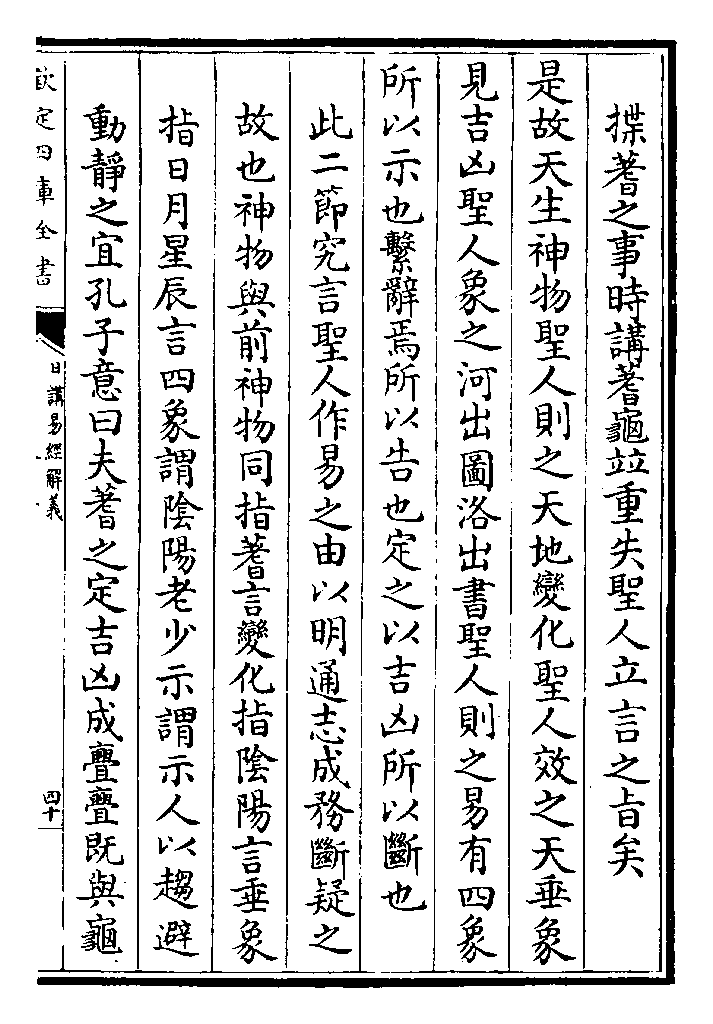 揲蓍之事時講蓍龜竝重失聖人立言之旨矣
是故天生神物聖人則之天地變化聖人效之天垂象
見吉凶聖人象之河出圖洛出書聖人則之易有四象
所以示也繫辭焉所以告也定之以吉凶所以斷也
此二節究言聖人作易之由以明通志成務斷疑之
故也神物與前神物同指蓍言變化指陰陽言垂象
指日月星辰言四象謂陰陽老少示謂示人以趨避
動靜之宜孔子意曰夫蓍之定吉凶成亹亹既與龜
欽定四庫全書
日講易經解義
四十